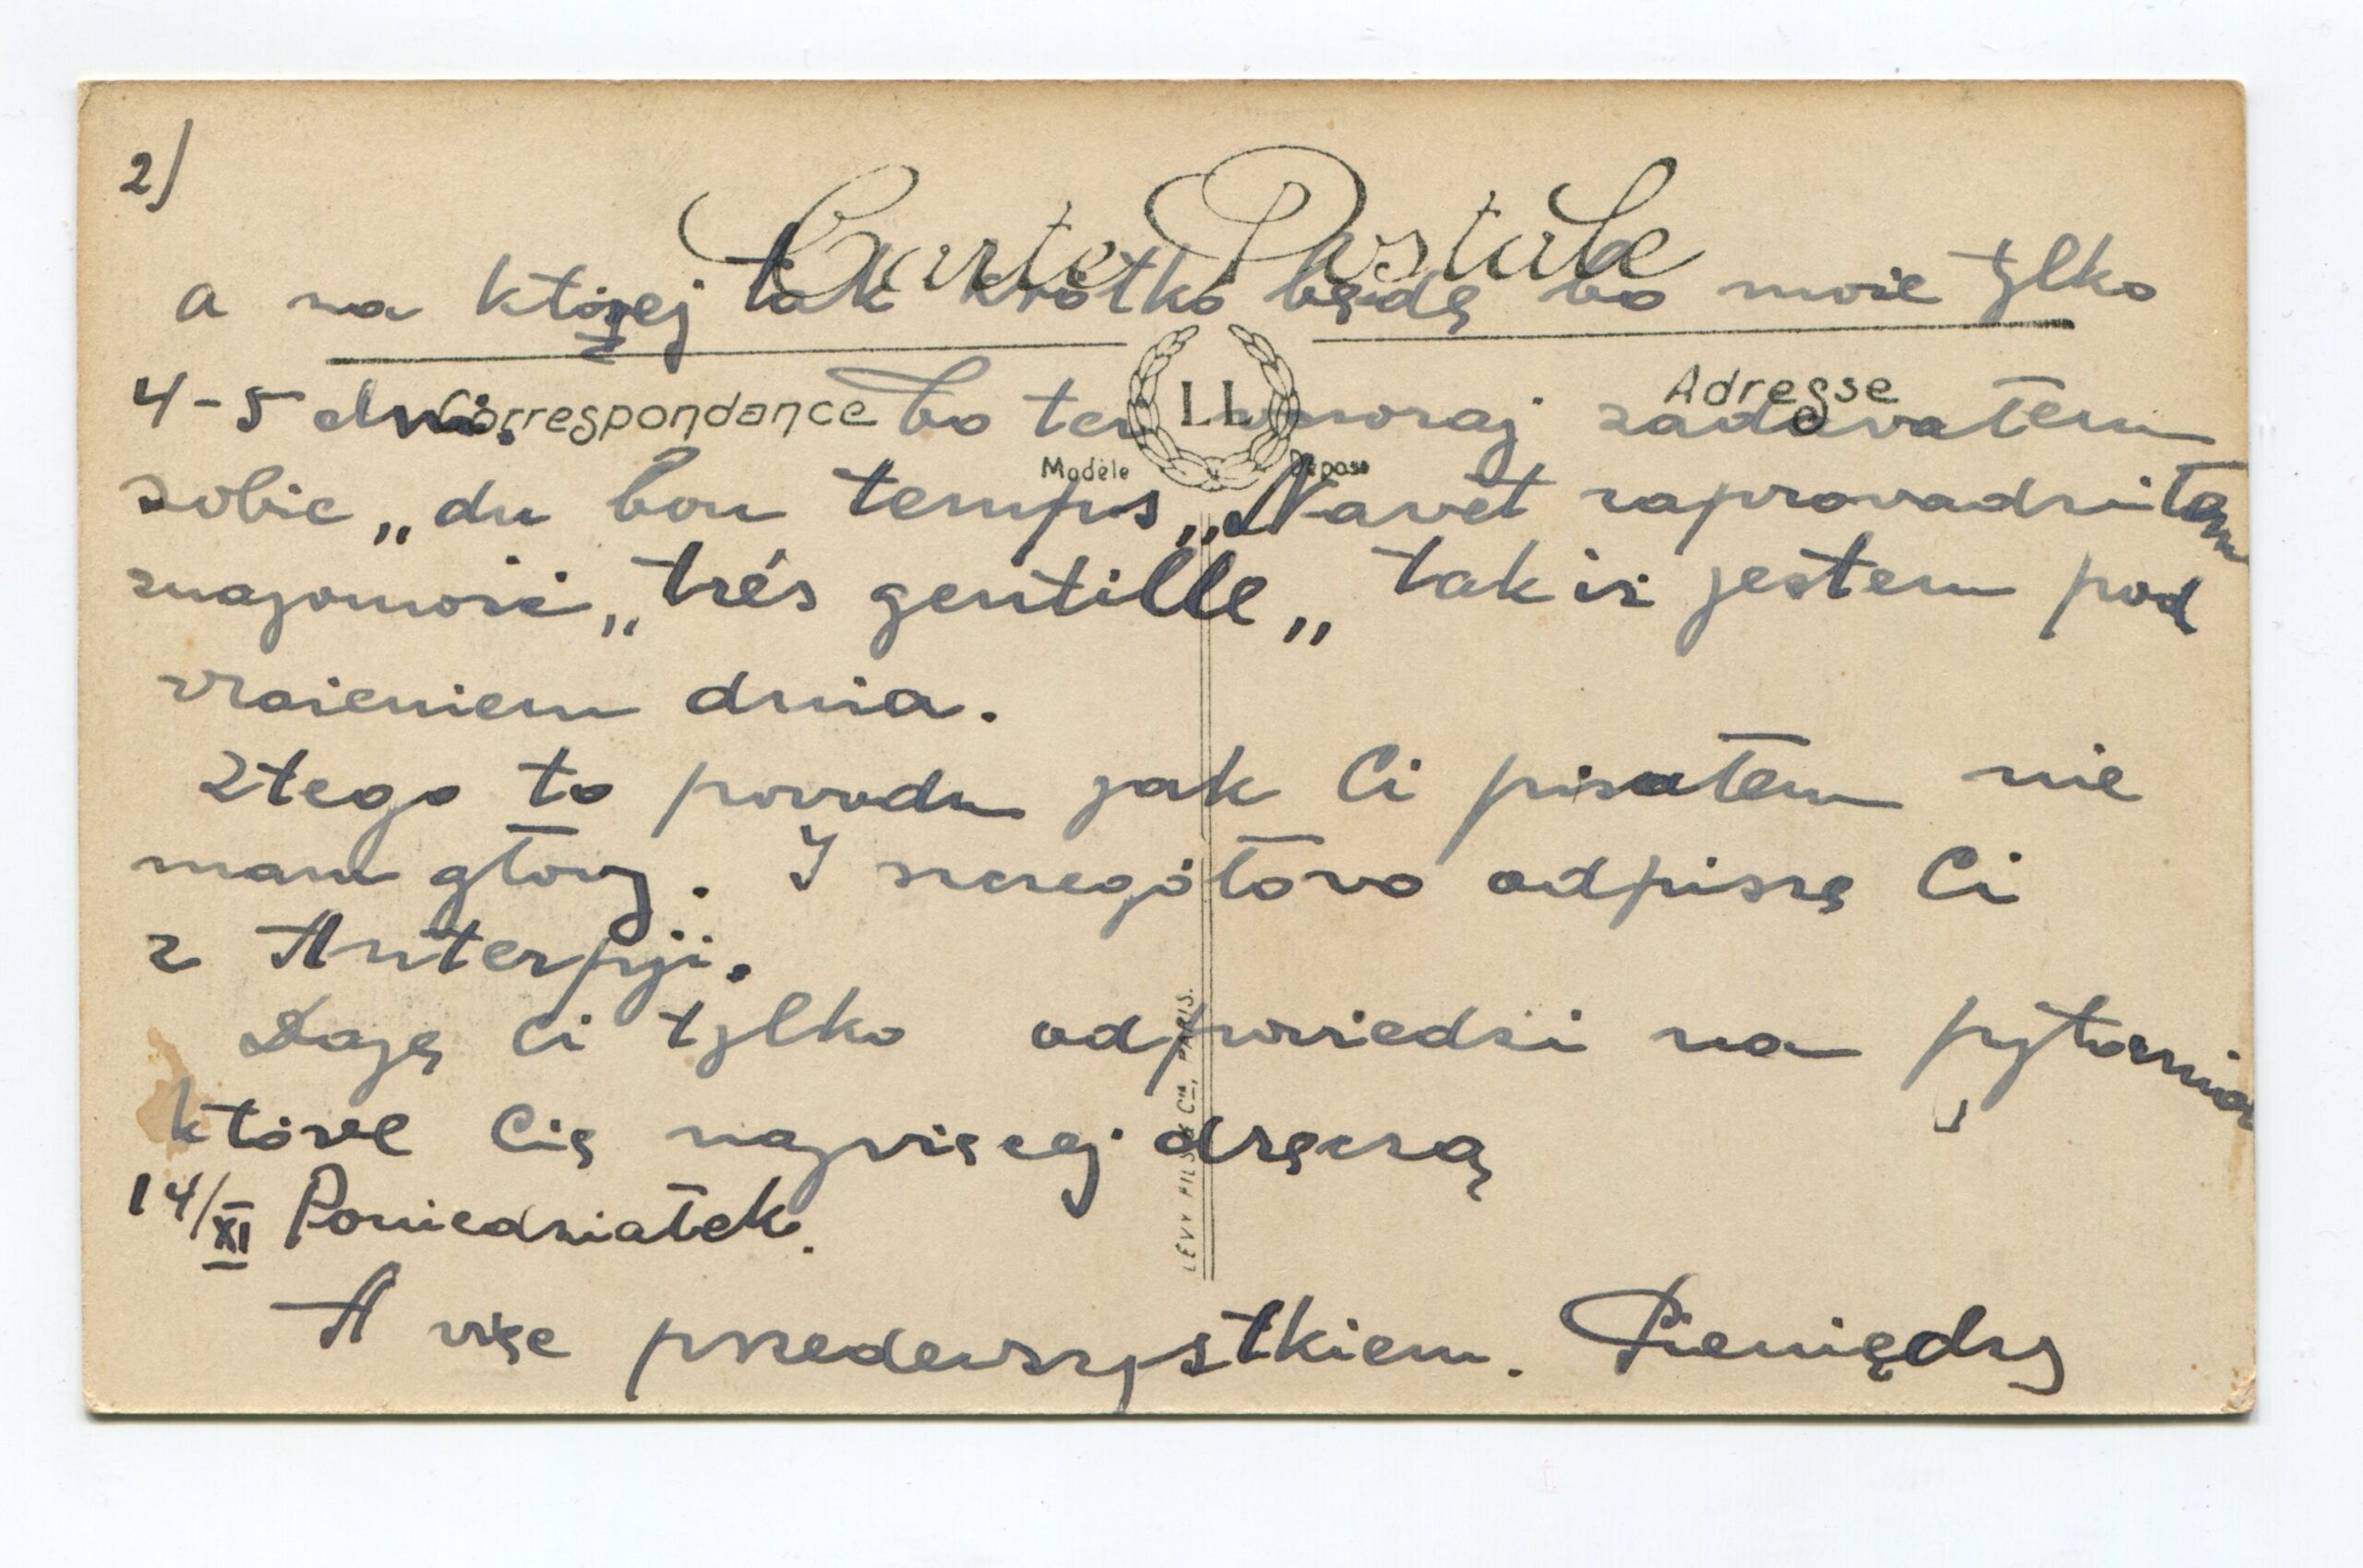 2)
Carte Postale
a na której tak krótko będę bo może tylko
4-5 dni. bo też wczoraj zadawałem
Correspondance
Adresse
LL
Modèle Déposé
sobie „du bon temps„ Nawet zaprowadziłem
znajomość „trés gentille„ tak iż jestem pod
wrażeniem dnia.
Z tego to powodu jak Ci pisałem nie
mam głowy. I szczegółowo odpiszę Ci
z Anterpji.
Daję Ci tylko odpowiedzi na pytania
które Cię najwięcej dręczą
14/XI Poniedziałek.
A więc przedewszystkiem. Pieniędzy
LÉVY FILS & Cie, PARIS.